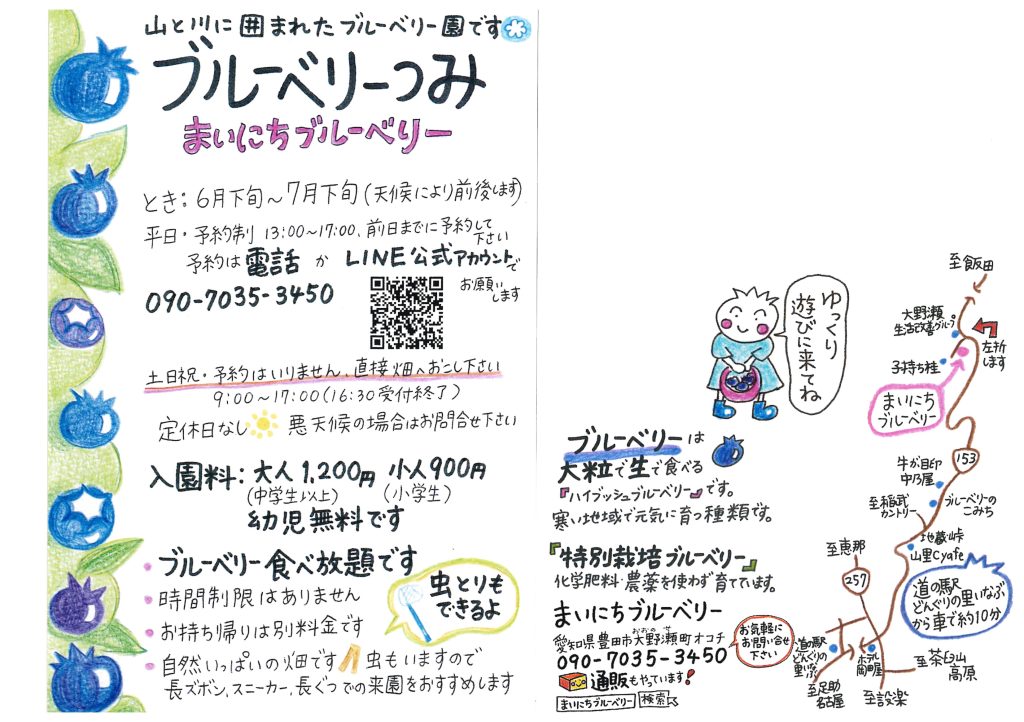 山と川に囲まれたブルーベリー園です
ブルーベリーつみ
まいにちブルーベリー
とき:6月下旬〜7月下旬(天候により前後します)
平日・予約制 13:00〜17:00、前日までに予約して下さい
予約は電話か LINE公式アカウントで
お願いします
090-7035-3450
土日祝・予約はいりません、直接畑へおこし下さい
9:00〜17:00(16:30受付終了)
定休日なし 悪天候の場合はお問合せ下さい
入園料:大人1,200円 小人900円
(中学生以上) (小学生)
幼児無料です
・ブルーベリー食べ放題です
・時間制限はありません
・お持ち帰りは別料金です
・自然いっぱいの畑です 虫もいますので
長ズボン、スニーカー、長ぐつでの来園をおすすめします
虫とりも
できるよ
ゆっくり
遊びに来てね
ブルーベリーは
大粒で生で食べる
『ハイブッシュブルーベリー』です。
寒い地域で元気に育つ種類です。
『特別栽培ブルーベリー』
化学肥料・農薬を使わず育てています。
まいにちブルーベリー
愛知県豊田市大野瀬町オコチ
おおのせ
090-7035-3450
お気軽に
お問い合せ
下さい
通販もやっています!
まいにちブルーベリー 検索
至飯田
大野瀬
生活改善グループ
左折
します
子持ち桂
まいにち
ブルーベリー
153
牛が目印
中乃屋
至稲武
カントリー
ブルーベリーの
こみち
地蔵峠
山里Cyafe
至恵那
257
道の駅
どんぐりの里いなぶ
から車で約10分
道の駅
どんぐりの
里いなぶ
ホテル
岡田屋
至茶臼山
高原
至足助
名古屋
至設楽